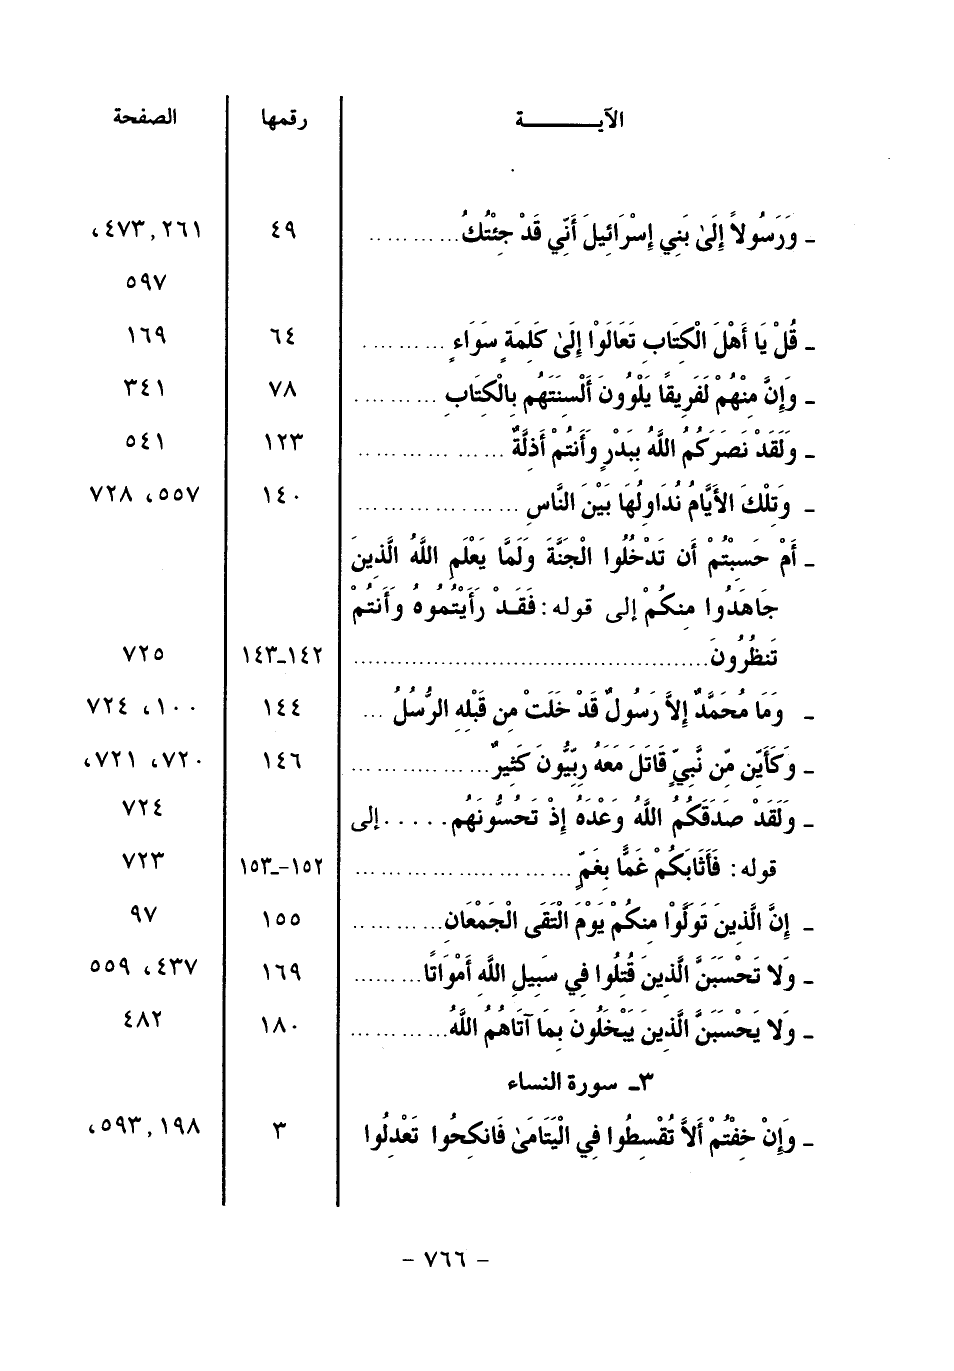 الآيـــــــــة رقمها الصفحة
ـ وَرَسُولاً إِلَىٰ بَنِي إِسْرَائِيلَ أَنِّي قَدْ جِئْتُكُ... ... ... .. ٤٩ ٢٦١, ٤٧٣،
٥٩٧
ـ قُلْ يَا أَهْلَ الْكِتَابِ تَعَالَوْا إِلَىٰ كَلِمَةٍ سَوَاءٍ ... ... ... . ٦٤ ١٦٩
ـ وَإِنَّ مِنْهُمْ لَفَرِيقًا يَلْوُونَ أَلْسِنَتَهُم بِالْكِتَابِ ... ... ... . ٧٨ ٣٤١
ـ وَلَقَدْ نَصَرَكُمُ اللَّهُ بِبَدْرٍ وَأَنتُمْ أَذِلَّةٌ ... ... ... ... ... .. ١٢٣ ٥٤١
ـ وَتِلْكَ الأَيَّامُ نُدَاوِلُهَا بَيْنَ النَّاسِ ... ... . ... ... ... ... ١٤٠ ٥٥٧، ٧٢٨
ـ أَمْ حَسِبْتُمْ أَن تَدْخُلُوا الْجَنَّةَ وَلَمَّا يَعْلَمِ اللَّهُ الَّذِينَ
جَاهَدُوا مِنكُمْ إلى قوله: فَقَدْ رَأَيْتُمُوهُ وَأَنتُمْ
تَنظُرُونَ................................................ ١٤٢ـ١٤٣ ٧٢٥
ـ وَمَا مُحَمَّدٌ إِلاَّ رَسُولٌ قَدْ خَلَتْ مِن قَبْلِهِ الرُّسُلُ ... ١٤٤ ١٠٠، ٧٢٤
ـ وَكَأَيِّن مِّن نَّبِيٍّ قَاتَلَ مَعَهُ رِبِّيُّونَ كَثِيرٌ... ... ..... ... ... ١٤٦ ٧٢٠، ٧٢١،
ـ وَلَقَدْ صَدَقَكُمُ اللَّهُ وَعْدَهُ إِذْ تَحُسُّونَهُم . . . . . إلى ٧٢٤
قوله: فَأَثَابَكُمْ غَمًّا بِغَمٍّ ... ... ... ..... ... ... ... ... ١٥٢-ـ١٥٣ ٧٢٣
ـ إِنَّ الَّذِينَ تَوَلَّوْا مِنكُمْ يَوْمَ الْتَقَى الْجَمْعَانِ... ... ... .. ١٥٥ ٩٧
ـ وَلا تَحْسَبَنَّ الَّذِينَ قُتِلُوا فِي سَبِيلِ اللَّهِ أَمْوَاتًا... ...... ١٦٩ ٤٣٧، ٥٥٩
ـ وَلا يَحْسَبَنَّ الَّذِينَ يَبْخَلُونَ بِمَا آتَاهُمُ اللَّهُ... ... ... ... ١٨٠ ٤٨٢
٣ـ سورة النساء
ـ وَإِنْ خِفْتُمْ أَلاَّ تُقْسِطُوا فِي الْيَتَامَىٰ فَانكِحُوا تَعْدِلُوا ٣ ١٩٨, ٥٩٣،
– ٧٦٦ –